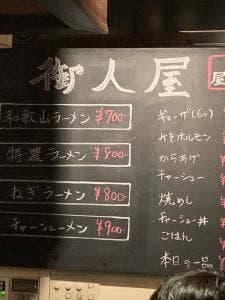 御人屋
屋
和歌山ラーメン ¥700-
特濃ラーメン ¥800-
ねぎラーメン ¥800-
チャーシューメン ¥900-
ギョーザ(6ヶ) ¥
みそホルモン ¥
からあげ ¥
チャーシュー ¥
焼めし ¥
チャーシュー丼 ¥
ごはん ¥
本日の一品